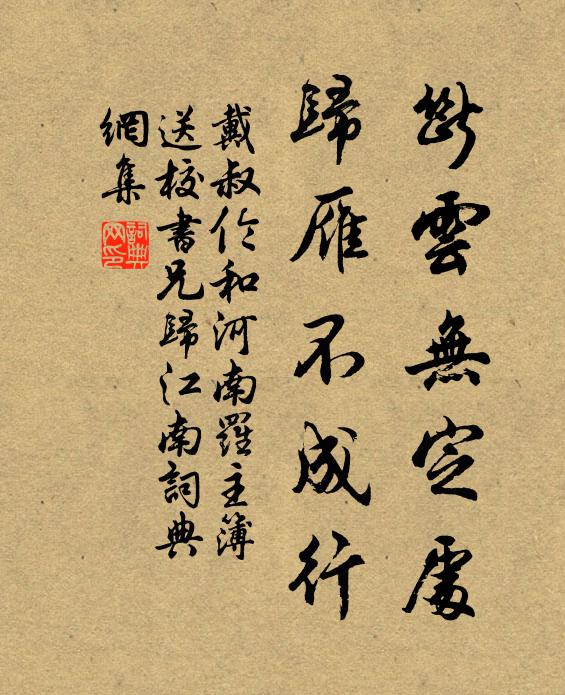 斷雲無定處
歸雁不成行
戴叔倫和河南羅主簿
送校書兄歸江南詞典
網集
詞典
网印